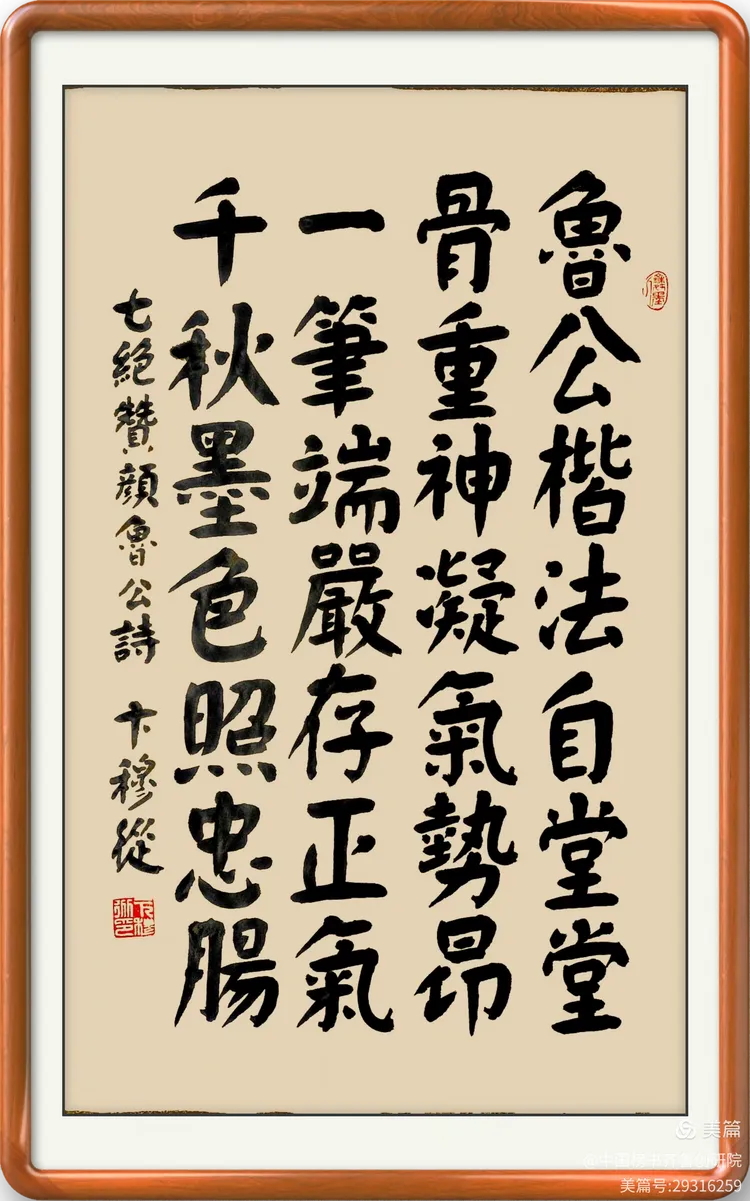 魯公楷法自堂堂
骨重神凝氣勢昂
一筆端嚴存正氣
千秋墨色照忠腸
七絕贊顏魯公詩 卞穆從
美篇
美篇号:29316259